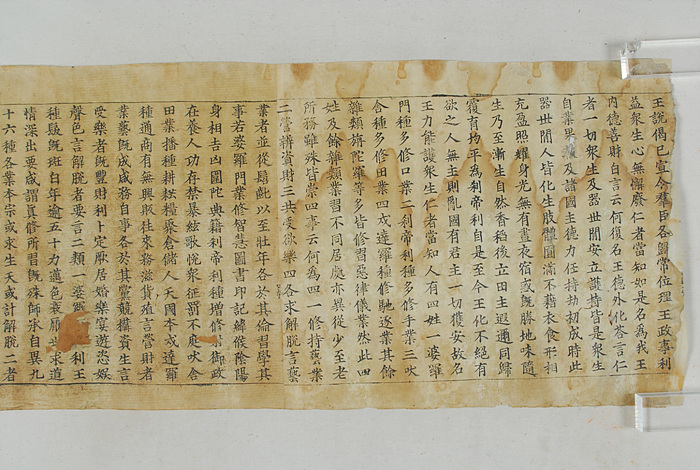 王說偈已宣令羣臣各歸常位理王政事利
益衆生心無懈厭仁者當知如是名爲我王
內德善財自言云何復名王德外化荅言仁
者一切衆生及器世間安立護持皆是衆生
自業果報及諸國主德力任持劫初成時此
器世間人皆化生肢體圓滿不藉衣食形相
充盈照耀身光無有晝夜宿或旣勝地味隨
生乃至漸生自然香稻後立田主遐通同歸
覆育均平爲刹帝利自是至今王化不絕有
欲之人無主則亂國有君主一切獲安故名
王力能護衆生仁者當知人有四姓一婆羅
門種多修口業二刹帝利種多修手業三吠
舍種多修田業四戍達羅種修馳逐業其餘
雜類旃陀羅等多皆修習惡律儀業然此四
姓及餘雜類業習不同居處亦異從少至老
所務雖殊皆崇四事云何爲四一修持藝業
二營緝資財三共受欲樂四各求解脫言藝
業者並從髫齔以至壯年各於其倫習學其
事若婆羅門業修智慧圖書印記緯候陰陽
身相吉凶圍陀典籍利帝利種增修射御政
在養人功存禁暴絃歌悅衆征罰不庭吠舍
田業播種耕耘糧藂倉儲人天國本戍達羅
種通商有無興販往來務滋貨殖言營財者
業藝旣成咸務自事各於其黨競搆資生言
受樂者旣豐財利卜定厥居婚樂宴遊恣娛
聲色言解脫者要言二類一婆羅 利王
種鬚旣斑白年逾五十力邁色衰 求道
情深出要咸謂眞修所習旣殊師承自異九
十六種各業本宗或求生天或計解脫二者